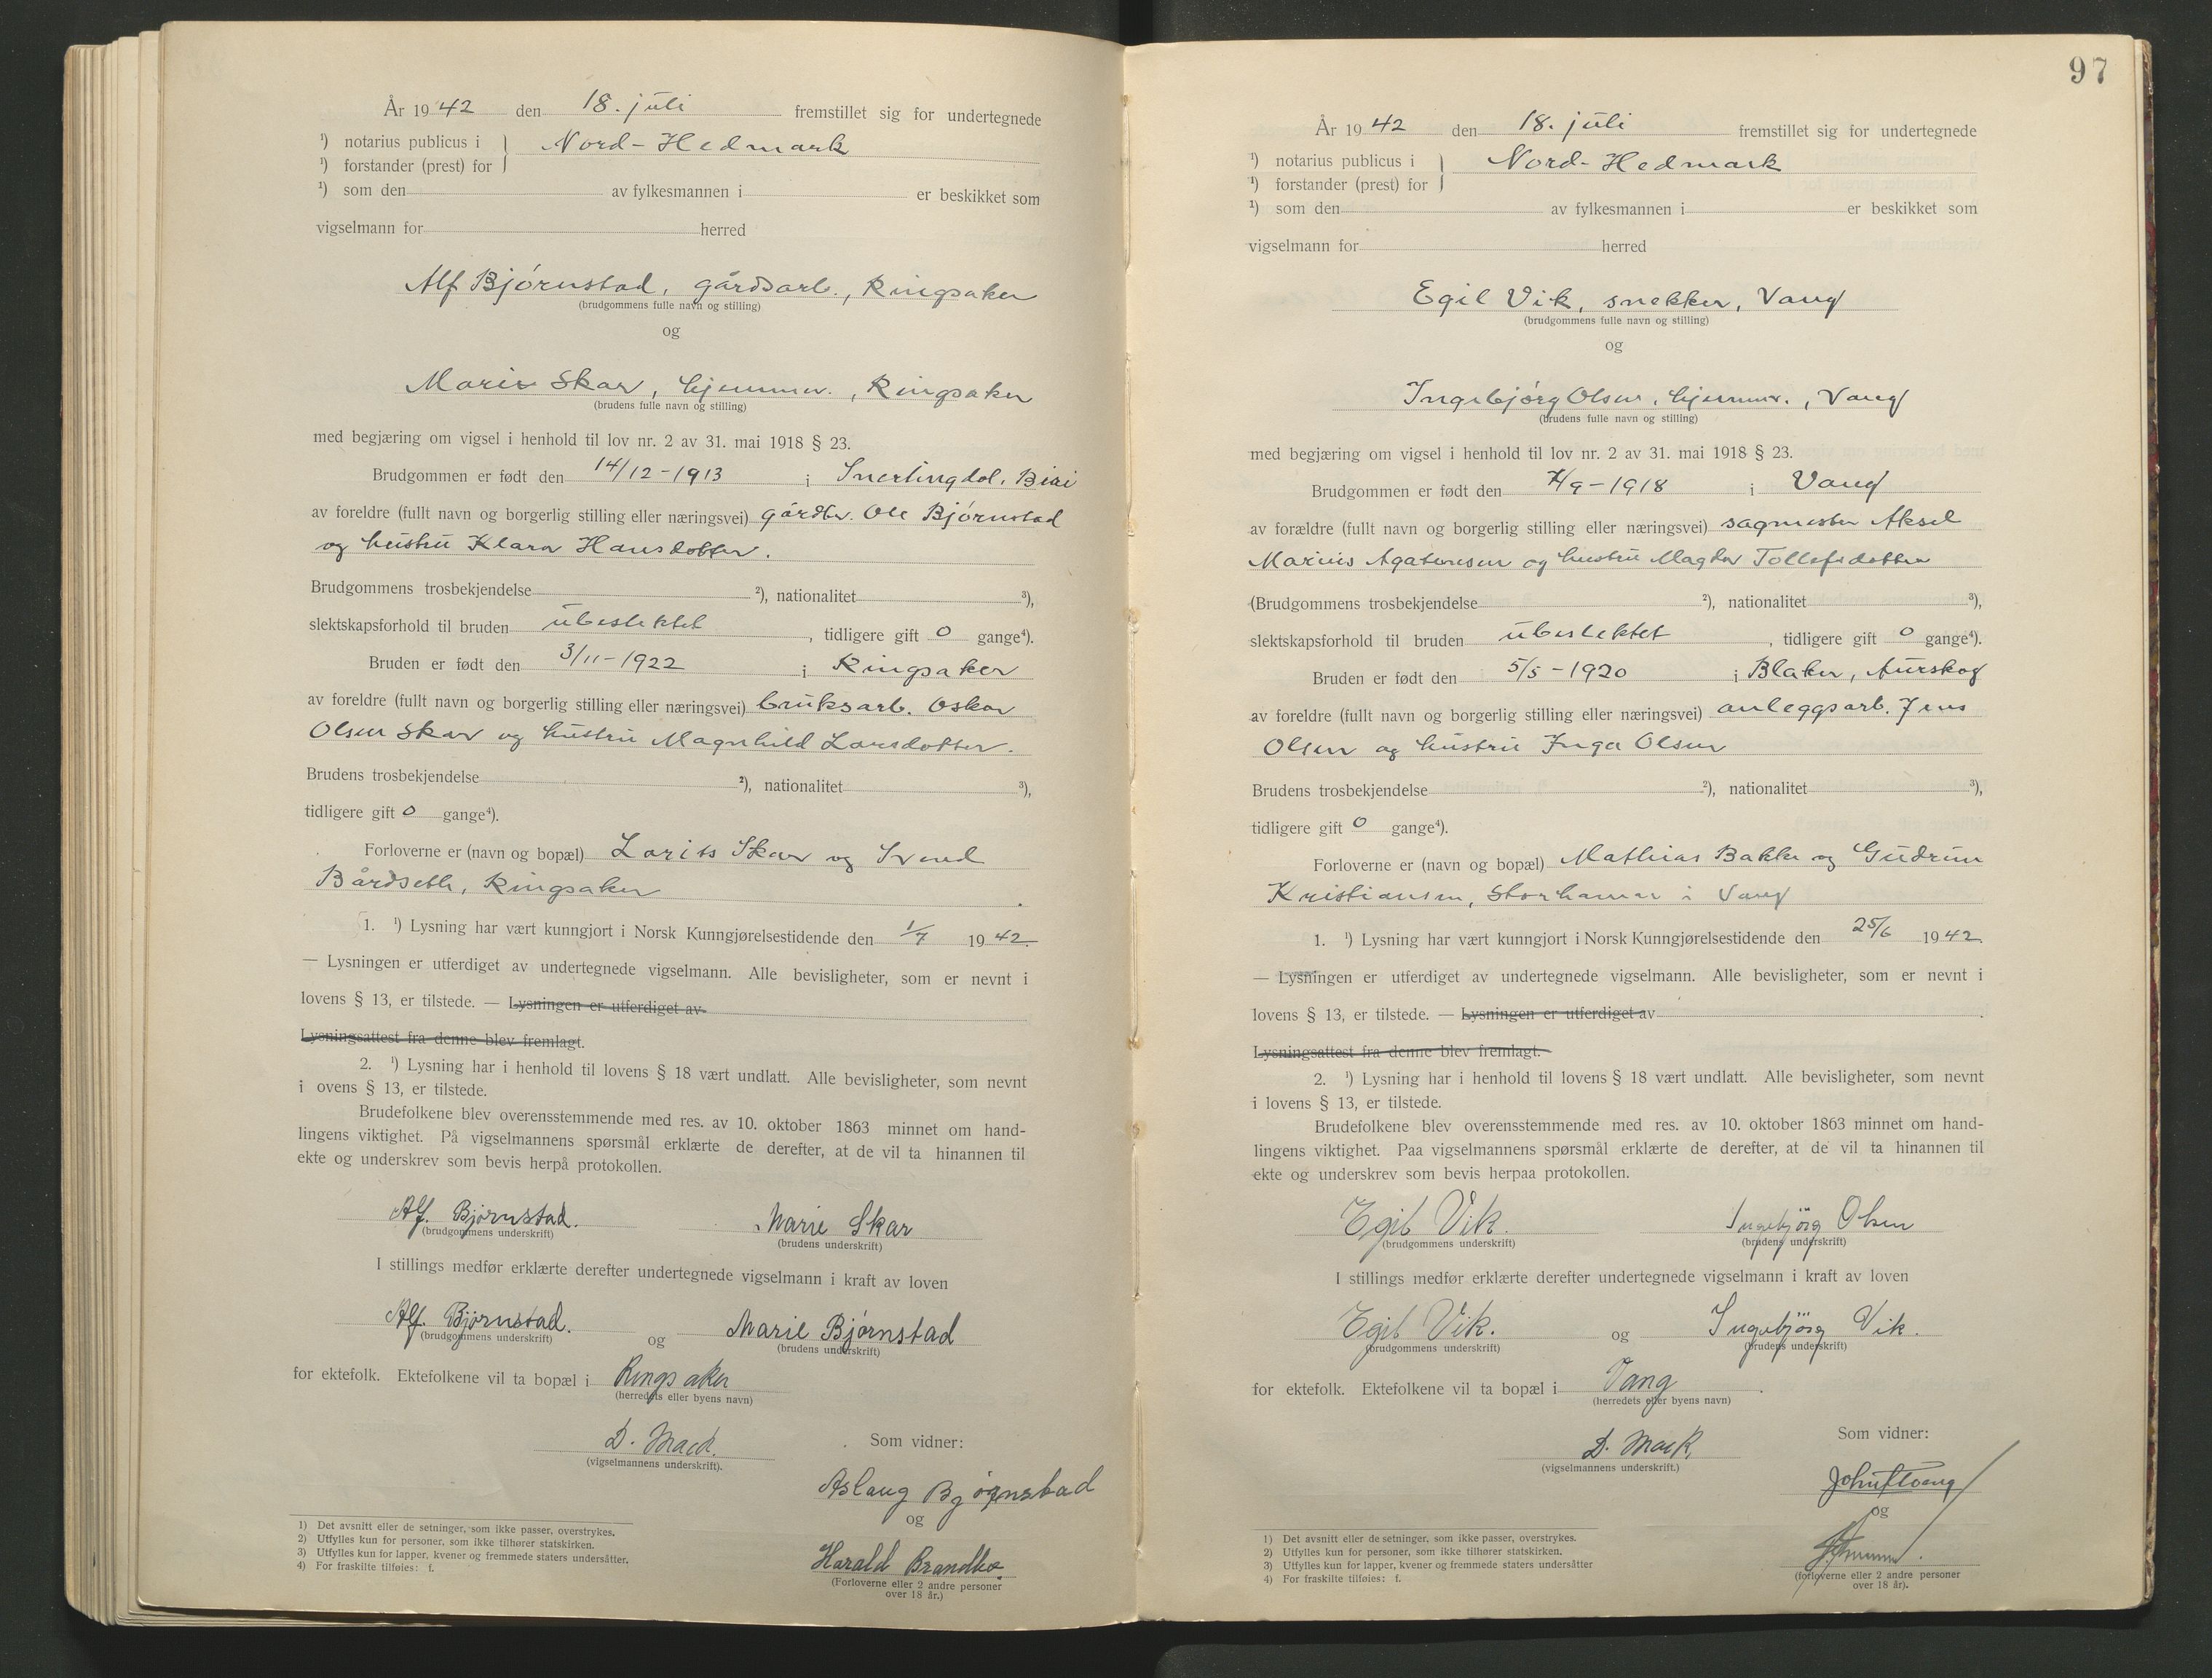 År 19 42 den 18. juli fremstillet sig for undertegnede
¹) notarius publicus i } Nord-Hedmark
¹) forstander (prest) for
¹) som den av fylkesmannen i er beskikket som
vigselmann for herred
Alf Bjørnstad, gårdsarb., Ringsaker
(brudgommens fulle navn og stilling)
og
Marie Skar, hjemmev., Ringsaker
(brudens fulle navn og stilling)
med begjæring om vigsel i henhold til lov nr. 2 av 31. mai 1918 § 23.
Brudgommen er født den 14/12-1913 i Snertingdal, Biri
av foreldre (fullt navn og borgerlig stilling eller næringsvei) gårdbr. Ole Bjørnstad
og hustru Klara Hansdotter.
Brudgommens trosbekjendelse ²), nationalitet ³),
slektskapsforhold til bruden ubeslektet, tidligere gift 0 gange⁴).
Bruden er født den 3/11-1922 i Ringsaker
av foreldre (fullt navn og borgerlig stilling eller næringsvei) bruksarb. Oskar
Olsen Skar og hustru Magnhild Larsdotter.
Brudens trosbekjendelse ²), nationalitet ³),
tidligere gift 0 gange⁴).
Forloverne er (navn og bopæl) Skar og Svend
Bårdseth, Ringsaker.
1. ¹) Lysning har vært kunngjort i Norsk Kunngjørelsestidende den 1/7 1942.
— Lysningen er utferdiget av undertegnede vigselmann. Alle bevisligheter, som er nevnt i
lovens § 13, er tilstede. — Lysningen er utferdiget av
Lysningsattest fra denne blev fremlagt.
2. ¹) Lysning har i henhold til lovens § 18 vært undlatt. Alle bevisligheter, som nevnt
i ovens § 13, er tilstede.
Brudefolkene blev overensstemmende med res. av 10. oktober 1863 minnet om hand-
lingens viktighet. På vigselmannens spørsmål erklærte de derefter, at de vil ta hinannen til
ekte og underskrev som bevis herpå protokollen.
Alf. Bjørnstad. Marie Skar
(brudgommens underskrift) (brudens underskrift)
I stillings medfør erklærte derefter undertegnede vigselmann i kraft av loven
Alf. Bjørnstad. og Marie Bjørnstad
(brudgommens underskrift) (brudens underskrift)
for ektefolk. Ektefolkene vil ta bopæl i Ringsaker
(herredets eller byens navn)
D. Mack.
(vigselmannens underskrift).
Som vidner:
Aslaug Bjørnstad
og
Harald Brandbo.
(Forloverne eller 2 andre personer
over 18 år.)
1) Det avsnitt eller de setninger, som ikke passer, overstrykes.
2) Utfylles kun for personer, som ikke tilhører statskirken.
3) Utfylles kun for lapper, kvener og fremmede staters undersåtter.
4) For fraskilte tilføies: f.
97
År 19 42 den 18. juli fremstillet sig for undertegnede
¹) notarius publicus i } Nord-Hedmark
¹) forstander (prest) for
¹) som den av fylkesmannen i er beskikket som
vigselmann for herred
Egil Vik, snekker, Vang
(brudgommens fulle navn og stilling)
og
Ingebjørg Olsen, hjemmev., Vang
(brudens fulle navn og stilling)
med begjæring om vigsel i henhold til lov nr. 2 av 31. mai 1918 § 23.
Brudgommen er født den 7/9-1918 i Vang
av forældre (fullt navn og borgerlig stilling eller næringsvei) sagmester Aksel
Marius Agatonsen og hustru Magda Tollefsdotter
(Brudgommens trosbekjendelse ²), nationalitet ³),
slektskapsforhold til bruden ubeslektet, tidligere gift 0 gange⁴).
Bruden er født den 5/5-1920 i Blaker, Aurskog
av foreldre (fullt navn og borgerlig stilling eller næringsvei) anleggsarb. Jens
Olsen og hustru Inga Olsen
Brudens trosbekjendelse ²), nationalitet ³),
tidligere gift 0 gange⁴).
Forloverne er (navn og bopæl) Mathias Bakke og Gudrun
Kristiansen, Storhamar i Vang
1. ¹) Lysning har vært kunngjort i Norsk Kunngjørelsestidende den 25/6 1942.
— Lysningen er utferdiget av undertegnede vigselmann. Alle bevisligheter, som er nevnt i
lovens § 13, er tilstede. — Lysningen er utferdiget av .
Lysningsattest fra denne blev fremlagt.
2. ¹) Lysning har i henhold til lovens § 18 vært undlatt. Alle bevisligheter, som nevnt
i lovens § 13, er tilstede.
Brudefolkene blev overensstemmende med res. av 10. oktober 1863 minnet om hand-
lingens viktighet. Paa vigselmannens spørsmål erklærte de derefter, at de vil ta hinannen til
ekte og underskrev som bevis herpaa protokollen.
Egil Vik. Ingebjörg Olsen
(brudgommens underskrift) (brudens underskrift)
I stillings medfør erklærte derefter undertegnede vigselmann i kraft av loven
Egil Vik. og Ingebjörg Vik.
(brudgommens underskrift) (brudens underskrift)
for ektefolk. Ektefolkene vil ta bopæl i Vang.
(herredets eller byens navn)
D. Mack
(vigselmannens underskrift.)
Som vidner:
og
(forloverne eller 2 andre personer
over 18 år).
1) Det avsnitt eller de setninger, som ikke passer, overstrykes.
2) Utfylles kun for personer, som ikke tilhører statskirken.
3) Utfylles kun for lapper, kvener og fremmede staters undersåtter
4) For fraskilte tilføies: f.